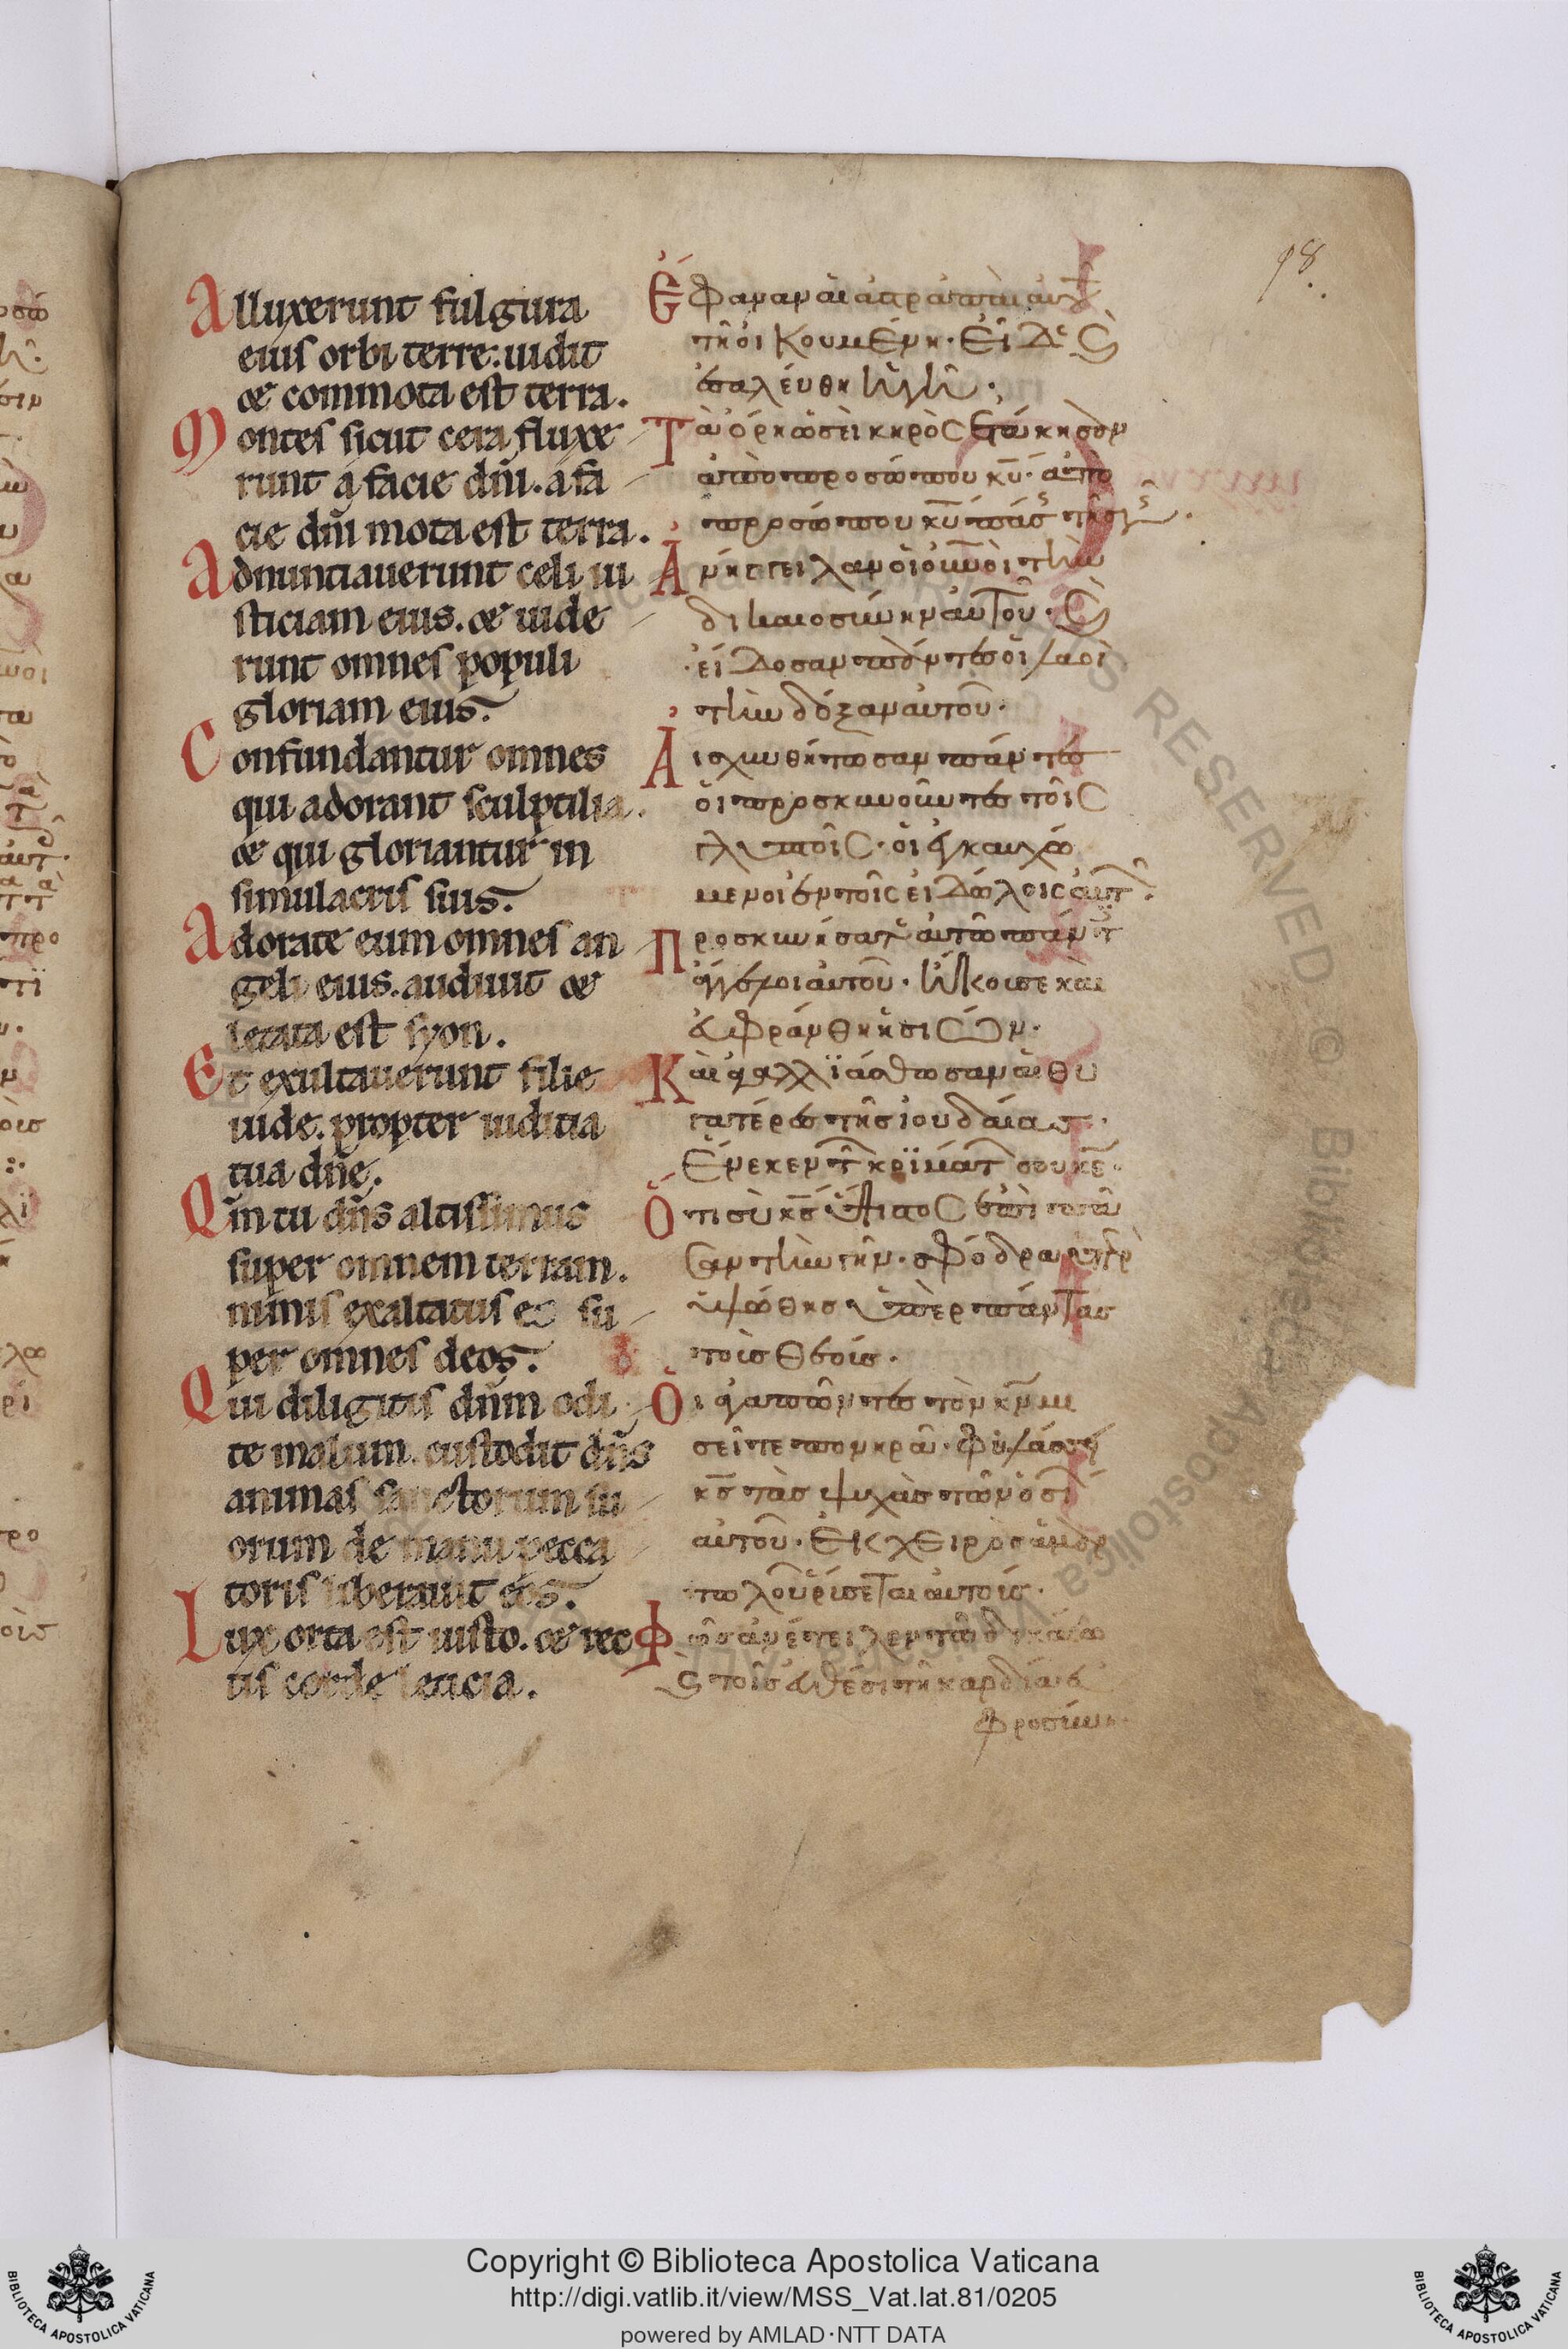 98.
Alluxerunt fulgura
eius orbi terre: uidit
& commota est terra.
Montes sicut cera fluxe
runt a facie dñi. a fa
cie dñi mota est terra.
Adnuntiauerunt celi iu
sticiam eius. & uide
runt omnes populi
gloriam eius.
Confundantur omnes
qui adorant sculptilia.
& qui gloriantur in
simulacris suis.
Adorate eum omnes an
geli eius. audiuit &
letata est syon.
Et exultauerunt filie
iude. propter iudicia
tua dñe.
Qm̃ tu dñs altissimus
super omnem terram.
nimis exaltatus es su
per omnes deos.
Qui diligitis dñm odi
te malum. custodit dñs
animas sanctorum su
orum de manu pecca
toris liberauit eos.
Lux orta est iusto. & rec
tis corde leticia.
Ἔφαναν ἁι ἀστραπὰι ἀυτ
τῆ ὀικουμένη. Ἐῖδε ϗ
ἐσαλέυθη ἡ γῆ.
Τὰ ὄρη ὡσεὶ κηρὸς ἐτάκησαν
ἀπὸ προσώπου κυ. ἀπὸ
προσώπου κυ πάσης τῆς γῆς.
Ἀνήγγειλαν ὁι ουνοὶ τὴν
δικαιοσύνην ἀυτοῦ. ϗ
εἴδοσαν πάντες ὁι λαοὶ
τὴν δόξαν ἀυτοῦ.
Ἀισχυνθήτωσαν πάντες
ὁι προσκυνοῦντες τοῖς
γλυπτοῖς. ὁι ἐγκαυχώ
μενοι ἐν τοῖς ειδώλοις ἀυτ.
Προσκυνήσατε ἀυτῶ πάντ
ἄγγελοι ἀυτοῦ. ἤκουσε και
ἐυφράνθη ἡ σιών.
Κὰι ἀγαλλϊάσθωσαν ἁι θυ
γατέρες τῆς ἰουδάιας.
Ἕνεκεν τ κριμάτ σου κε.
Ὅτι σὺ κς ὕψιστος ἐπὶ πᾶ
σαν τὴν γῆν. σφόδρα ὑπερ
ὑψώθης ὑπὲρ πάντας
τοὺς θεούς.
Ὁι ἀγαπῶντες τὸν κν μι
σεῖτε πονηρά. φυλάσσει
κς τὰς ψυχὰς τῶν ὁσί
ἀυτοῦ. Ἐκ χειρὸς ἁμαρ
τωλοῦ ῥύσεται ἀυτούς.
Φῶς ἀνέτειλεν τῶ δικάιω
ϗ τοῖς ἐυθέσι τῆ καρδία ἐυ
φροσύνη.
Copyright © Biblioteca Apostolica Vaticana
http://digi.vatlib.it/view/MSS_Vat.lat.81/0205
powered by AMLAD·NTT DATA